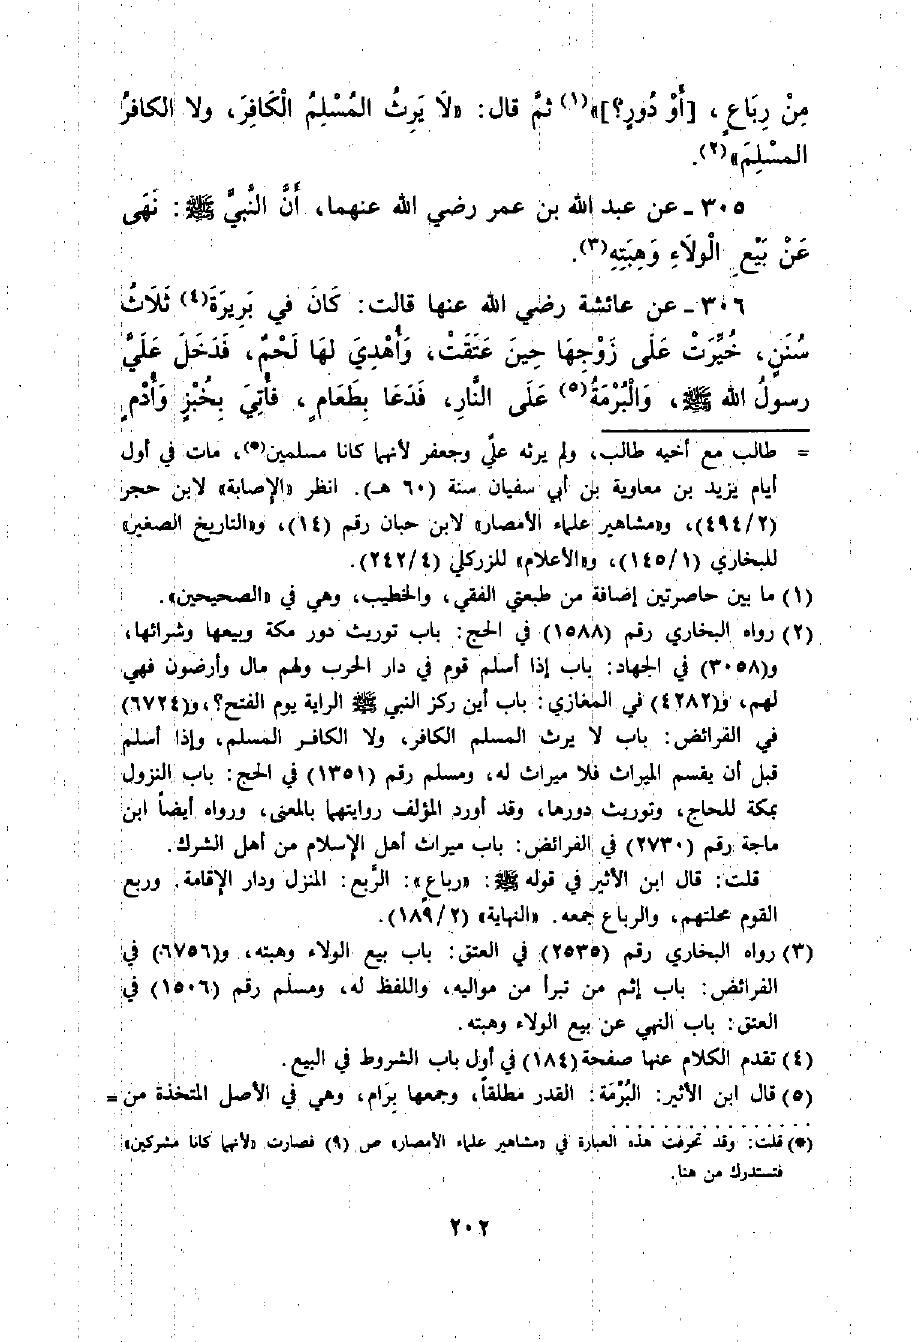 مِنْ رِبَاعٍ ، [أَوْ دُورٍ؟]»(١) ثمَّ قال: «لَا يَرِثُ المُسْلِمُ الْكَافِرَ، ولا الكافرُ
المسْلِمَ»(٢).
٣٠٥ ـ عن عبد الله بن عمر رضي الله عنهما، أَنَّ النَّبِيَّ ﷺ: نَهَى
عَنْ بَيْعِ الْوَلَاءِ وَهِبَتِهِ(٣).
٣٠٦ ـ عن عائشة رضي الله عنها قالت: كَانَ في بَرِيرَةَ(٤) ثَلَاثُ
سُنَنٍ، خُيِّرَتْ عَلَى زَوْجِهَا حِينَ عَتَقَتْ، وَأُهْدِيَ لهَا لَحْمٌ، فَدَخَلَ عَلَيَّ
رسولُ الله ﷺ، وَالْبُرْمَةُ(٥) عَلَى النَّارِ، فَدَعَا بِطَعَامٍ ، فأُتِيَ بِخُبْزٍ وَأُدْمٍ
= طالب مع أخيه طالب، ولم يرثه عليّ وجعفر لأنهما كانا مسلمين(*)، مات في أول
أيام يزيد بن معاوية بن أبي سفيان سنة (٦٠ هـ). انظر «الإصابة» لابن حجر
(٤٩٤/٢)، و«مشاهير علماء الأمصار» لابن حبان رقم (١٤)، و«التاريخ الصغير»
للبخاري (١٤٥/١)، و«الأعلام» للزركلي (٢٤٢/٤).
(١) ما بين حاصرتين إضافة من طبعتي الفقي، والخطيب، وهي في «الصحيحين».
(٢) رواه البخاري رقم (١٥٨٨) في الحج: باب توريث دور مكة وبيعها وشرائها،
و(٣٠٥٨) في الجهاد: باب إذا أسلم قوم في دار الحرب ولهم مال وأرضون فهي
لهم، و(٤٢٨٢) في المغازي: باب أين ركز النبي ﷺ الراية يوم الفتح؟،و(٦٧٢٤)
في الفرائض: باب لا يرث المسلم الكافر، ولا الكافر المسلم، وإذا أسلم
قبل أن يقسم الميراث فلا ميراث له، ومسلم رقم (١٣٥١) في الحج: باب النزول
بمكة للحاج، وتوريث دورها، وقد أورد المؤلف روايتهما بالمعنى، ورواه أيضاً ابن
ماجة رقم (٢٧٣٠) في الفرائض: باب ميراث أهل الإسلام من أهل الشرك.
قلت: قال ابن الأثير في قوله ﷺ: «رباع»: الرَّبع: المنزل ودار الإقامة. وربع
القوم محلتهم، والرباع جمعه. «النهاية» (١٨٩/٢).
(٣) رواه البخاري رقم (٢٥٣٥) في العتق: باب بيع الولاء وهبته، و(٦٧٥٦) في
الفرائض: باب إثم من تبرأ من مواليه، واللفظ له، ومسلم رقم (١٥٠٦) في
العتق: باب النهي عن بيع الولاء وهبته.
(٤) تقدم الكلام عنها صفحة (١٨٤) في أول باب الشروط في البيع.
(٥) قال ابن الأثير: البُرْمَة: القدر مطلقاً، وجمعها بِرَام، وهي في الأصل المتخذة من =
(*) قلت: وقد تحرفت هذه العبارة في «مشاهير علماء الأمصار» ص (٩) فصارت «لأنهما كانا مشركين»
فتستدرك من هنا.
٢٠٢